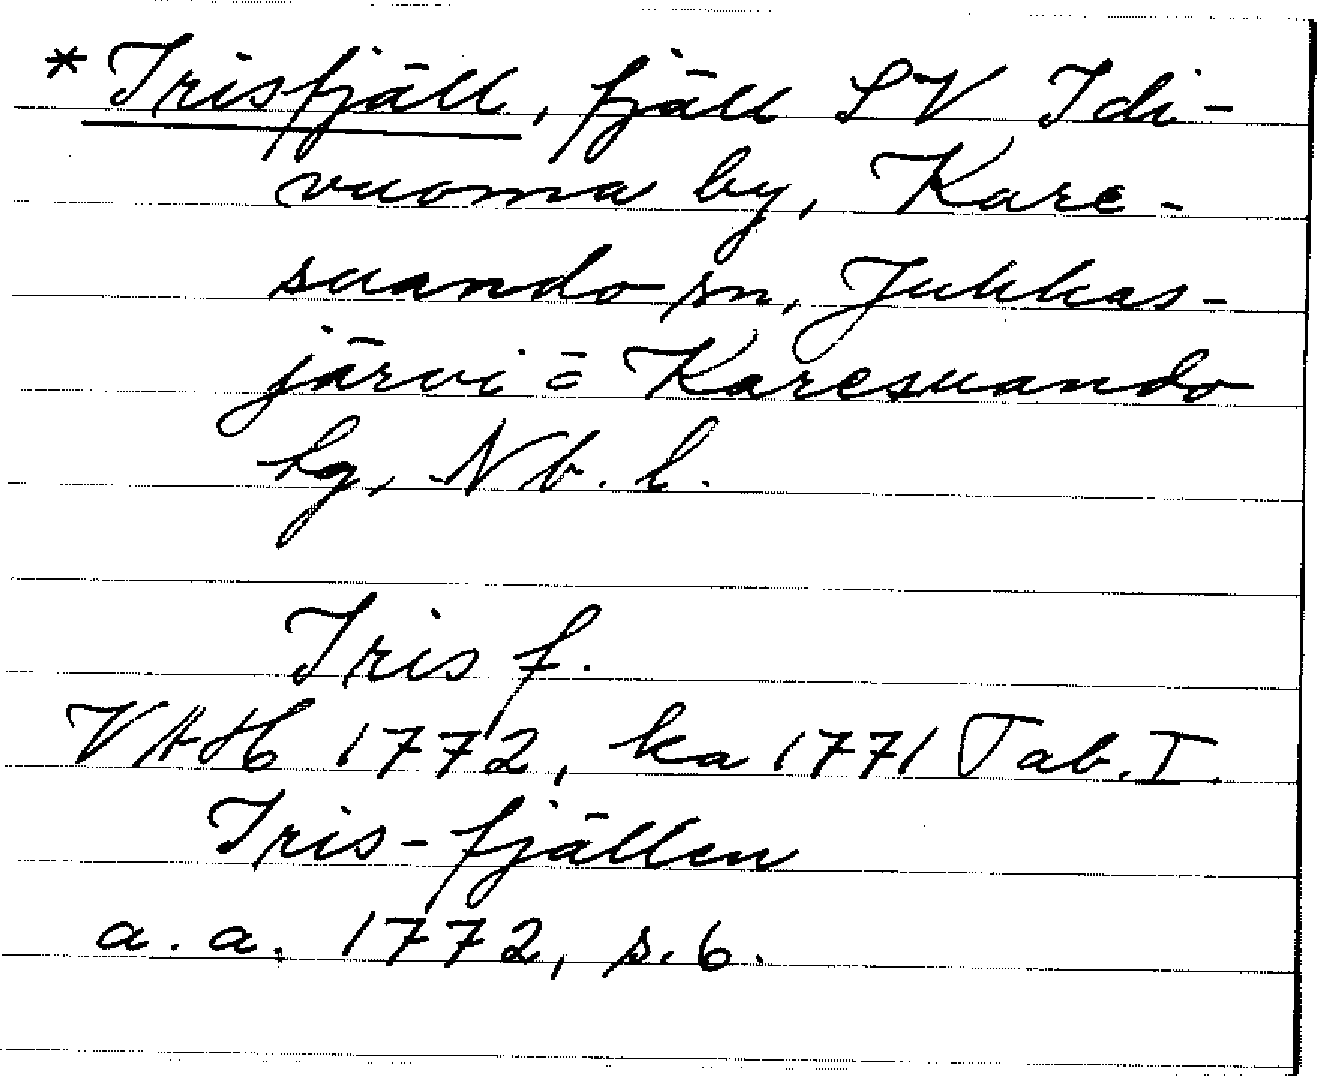 * Irisfjäll, fjäll SV Idi-
vuoma by, Kare-
suando sn, Jukkas-
järvi o Karesuando
tg, Nb. l.
Iris f.
VAH 1772, ka 1771 Tab. I.
Iris-fjällen
a. a. 1772, s. 6.